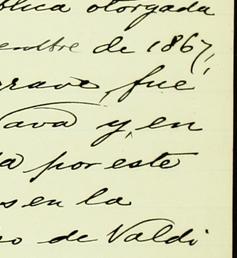 blica otorgada
embre de 1867,
grave, fue
Nava y, en
a por este
s en la
o de Valdi